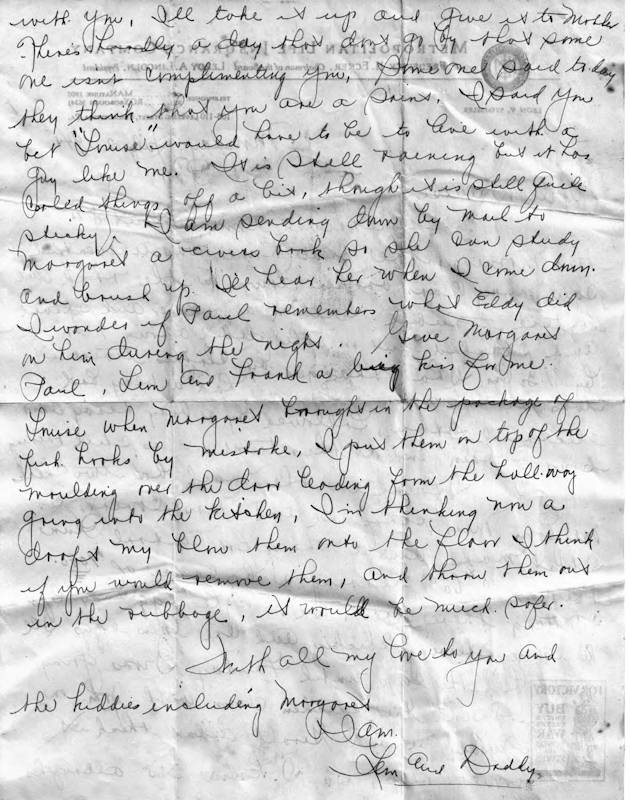 with you, I'll take it up and give it to Mother
There's hardly a day that don't go by that some
one isnt complimenting you, Someone said today
they think that you are a saint. I said you
bet "Louise" would have to be to live with a
guy like me. It is still raining but it has
cooled things off a bit, though it is still quite
sticky. I am sending down by mail to
Margaret a civics book so she can study
and brush up. I'll hear her when I come down.
I wonder if Paul remembers what Eddy did
on him during the night. Give Margaret
Paul, Lem and Frank a big kiss for me.
Louise when Margaret brought in the package of
fish hooks by mistake, I put them on top of the
moulding over the door leading from the hall-way
going into the kitchen, I'm thinking now a
draft my blow them onto the floor I think
if you would remove them, and throw them out
in the rubbage, it would be much safer.
With all my love to you and
the kiddies including Margaret
I am.
Lem and Daddy.
FOR VICTORY
BUY
WAR